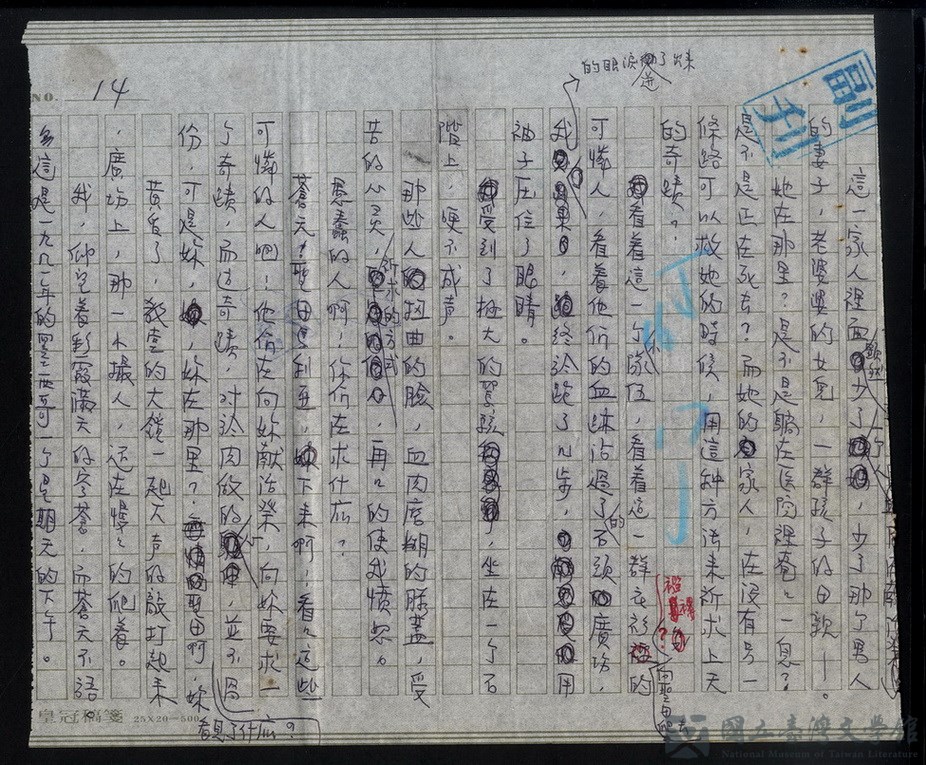 NO. 14
副刊
的眼淚迸了出來
這一家人裡面顯然少了一個，少了那個男人
的妻子，老婆婆的女兒，一群孩子的母親——。
她在那里？是不是躺在医院裡奄奄一息？
是不是正在死去？而她的家人，在沒有另一
條路可以救她的時候，用這种方法來祈求上天
的奇蹟？
看着這一个小隊伍，看着這一群衣衫襤褸的
可憐人，看着他们的血跡沾過的石頭廣場，
我，終於跑了几步，用
袖子压住了眼睛。
受到了極大的驚駭，坐在一个石
階上，哽不成声。
那些人扭曲的臉，血肉磨糊的膝蓋，受
苦的心灵，祈求的方式，再再的使我憤怒。
愚蠢的人啊！你们在求什麼？
蒼天！聖母瑪利亞，下來啊！看看這些
可憐的人吧！他们在向妳献活祭，向妳要求一
个奇蹟，而這奇蹟，对於肉做的心，並不過
份，可是妳，妳在那里？聖母啊，妳
看見了什麼？
黃昏了，教堂的大鐘一起大声的敲打起來
，廣場上，那一小撮人，還在慢慢的爬着。
我，仰望着彩霞滿天的穹蒼，而蒼天不語。
這是一九八一年的墨西哥一个星期天的下午。
皇冠稿箋 25X20=500
國立臺灣文學館
National Museum of Taiwan Literature